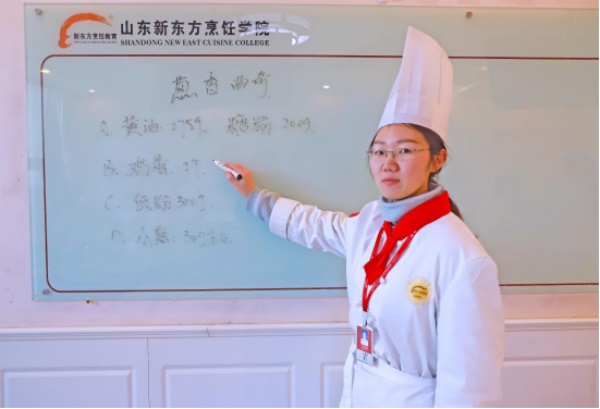 新东方烹饪教育
山东新东方烹饪学院
SHANDONG NEW EAST CUISINE COLLEGE
葱香曲奇
A. 黄油: 275g 糖粉 200g
B. 鸡蛋: 2个
C. 低粉 300g
D. 小葱: